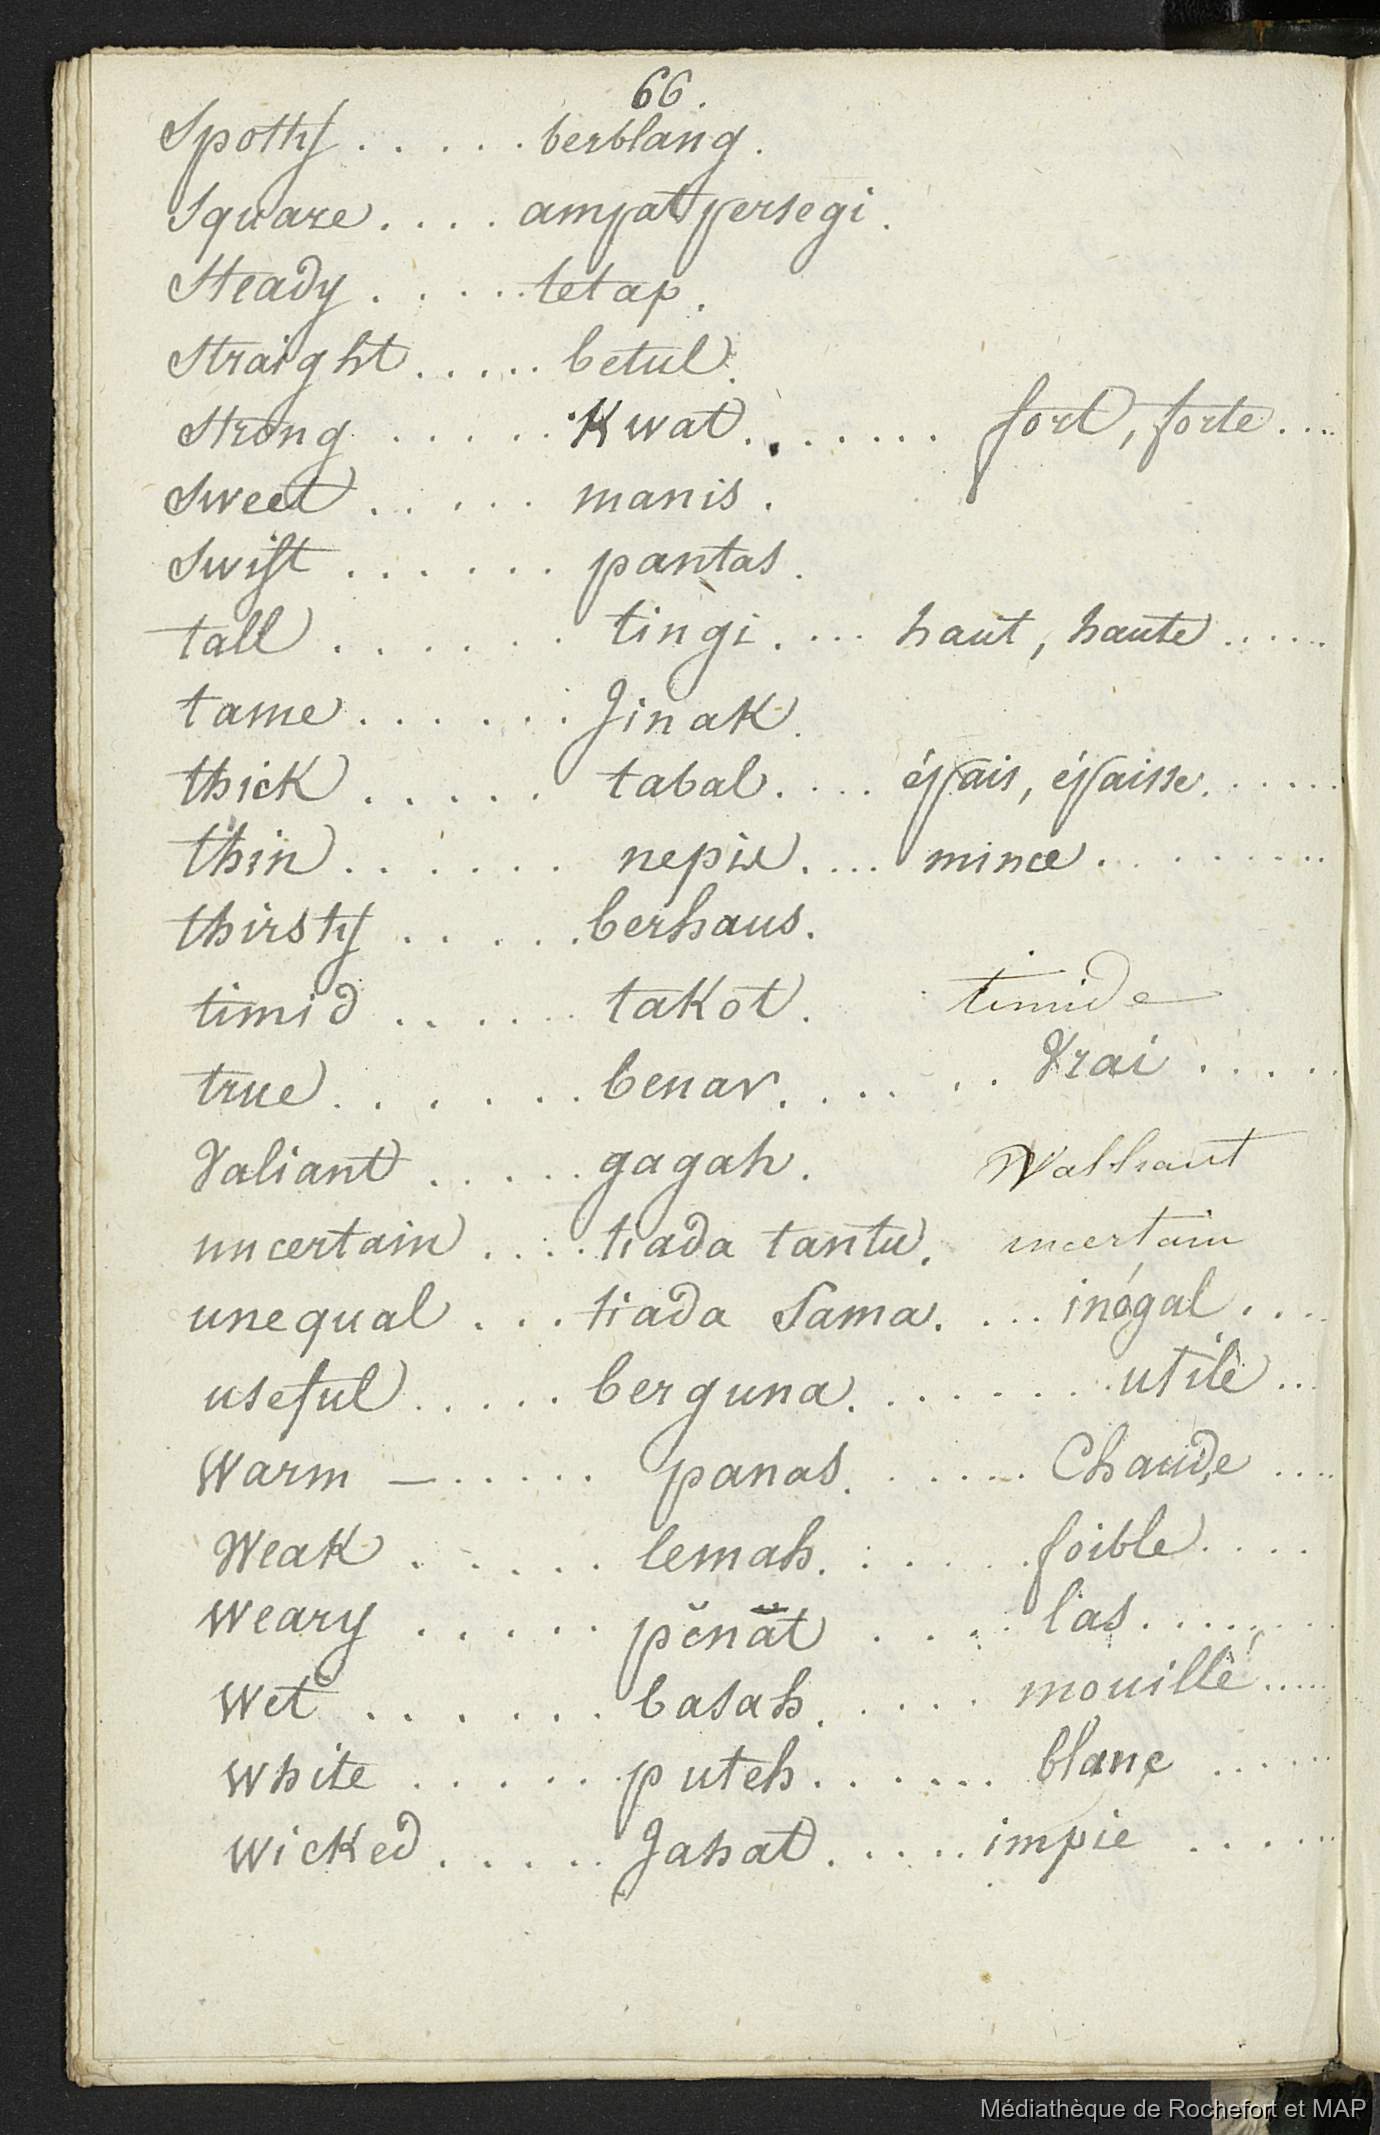 66.
Spotty . . . . . berblang.
Square . . . . ampat persegi.
Steady . . . . . tetap.
Straight . . . . . betul.
Strong . . . . . Kwat. . . . . . . fort, forte. . . .
Sweet . . . . . manis.
Swift . . . . . . pantas.
tall . . . . . . tingi. . . . haut, haute . . . . .
tame . . . . . . Jinak.
thick . . . . . tabal. . . . épais, épaisse. . . . . .
thin . . . . . . nepis. . . . mince. . . . . . . .
thirsty . . . . . berhaus.
timid . . . . . . takot. timide
true . . . . . . benar. . . . . . . Vrai . . . . .
Valiant . . . . . gagah.
uncertain . . . . tiada tantu. incertain
unequal . . . tiada Sama. . . . inégal . . .
useful . . . . . berguna. . . . . . . . utile . . .
Warm — . . . . . panas. . . . . . Chaude . . . .
Weak . . . . . lemah. . . . . . foible . . . .
Weary . . . . . pĕnăt . . . . las . . . . . . .
Wet . . . . . . basah. . . . . mouillé . . . . .
White . . . . . puteh . . . . . . blanc . . . . .
Wicked . . . . . Jahat . . . . . impie . . . . .
Médiathèque de Rochefort et MAP